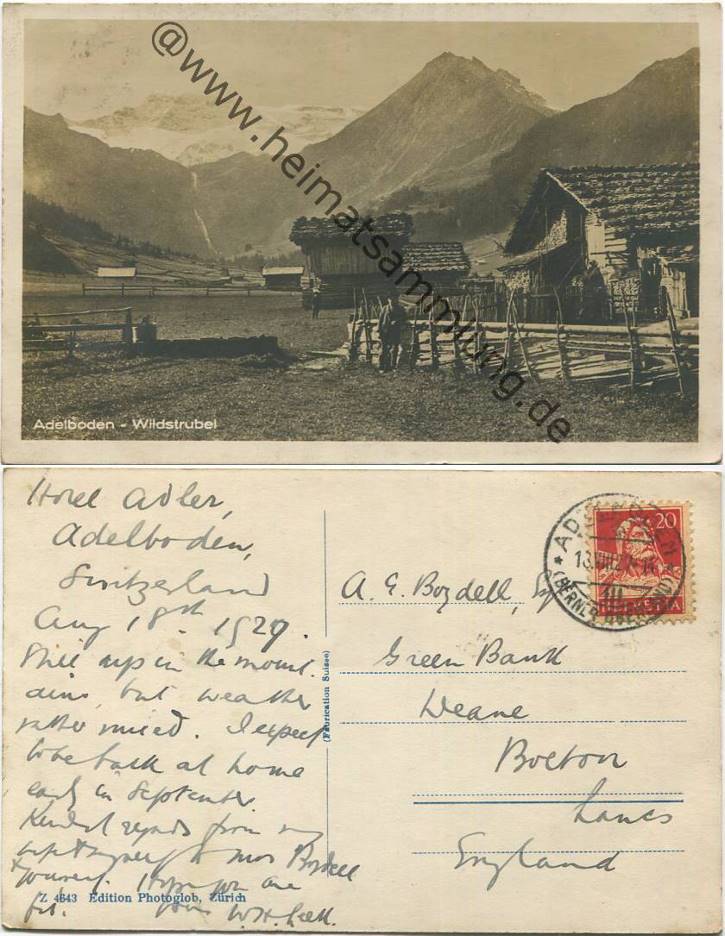 @www.heimatsammlung.de
Adelboden - Wildstrubel
Hotel Adler,
Adelboden,
Switzerland
Aug 18th 1927.
Still up in the mount-
ains, but weather
rather mixed. I expect
to be back at home
early in September.
Kindest regards from my
wife & myself to Mrs Boydell
& yourself. Hope you are
fit. Yours W.H.
Z 4643 Edition Photoglob, Zürich
(Fabrication Suisse)
ADELBODEN
(BERNER OBERLAND)
20
HELVETIA
A. E. Boydell, Esq
Green Bank
Deane
Bolton
Lancs
England